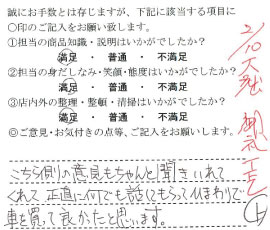 誠にお手数とは存じますが、下記に該当する項目に
○印のご記入をお願い致します。
①担当の商品知識・説明はいかがでしたか?
満足 ・ 普通 ・ 不満足
②担当の身だしなみ・笑顔・態度はいかがでしたか?
満足 ・ 普通 ・ 不満足
③店内外の整理・整頓・清掃はいかがでしたか?
満足 ・ 普通 ・ 不満足
◎ご意見・お気付きの点等、ご記入をお願いします。
こちら側の意見もちゃんと聞き入れて
くれて正直に何でも話してもらって
車を買って良かったと思います。
2/10